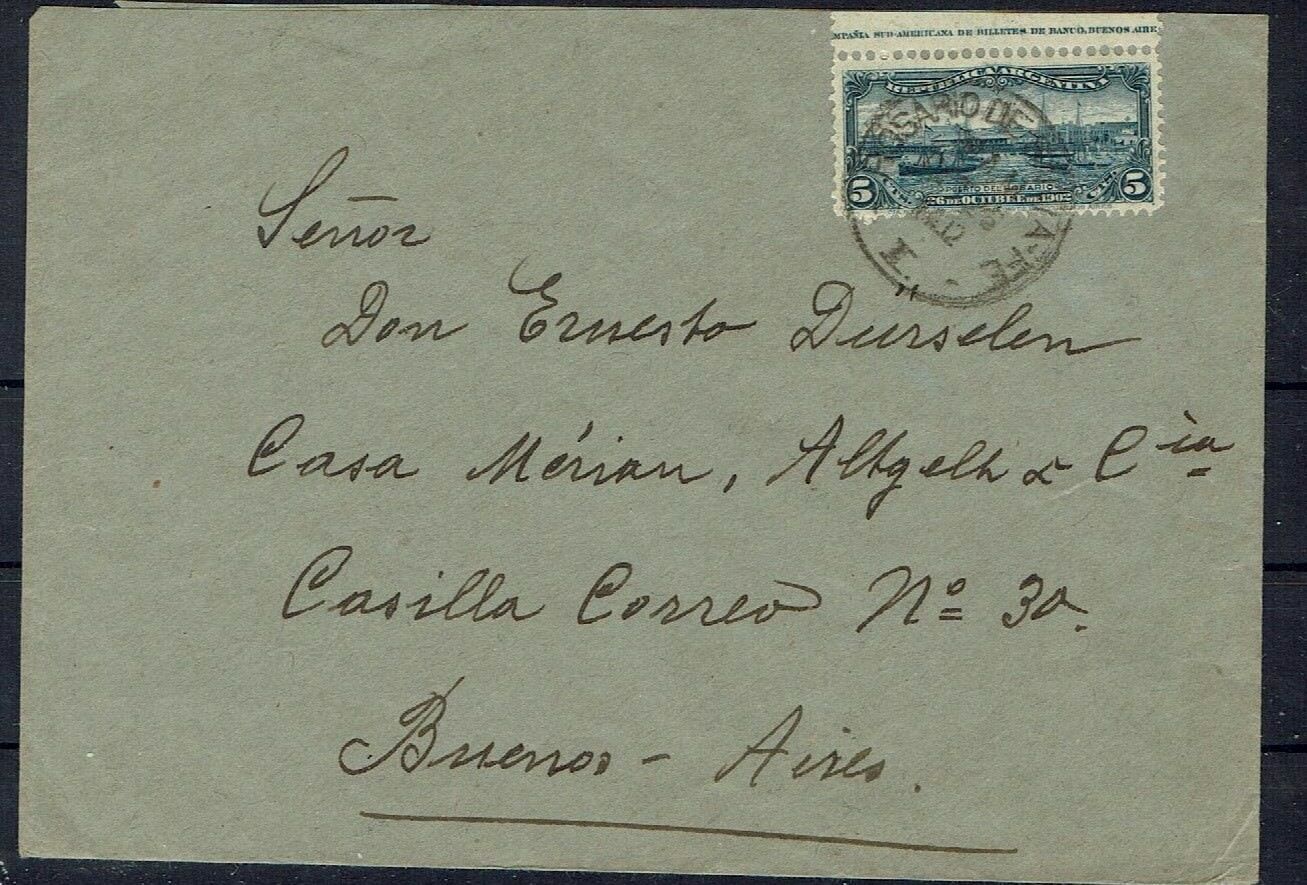 MPAÑIA SUD-AMERICANA DE BILLETES DE BANCO, BUENOS AIRE
REPUBLICA ARGENTINA
5 CTS. PUERTO DEL ROSARIO CTS. 5
26 DE OCTUBRE DE 1902
Señor
Don Ernesto Dürselen
Casa Mérian, Altgelt & Cía
Casilla Correo Nº 30.
Buenos - Aires.